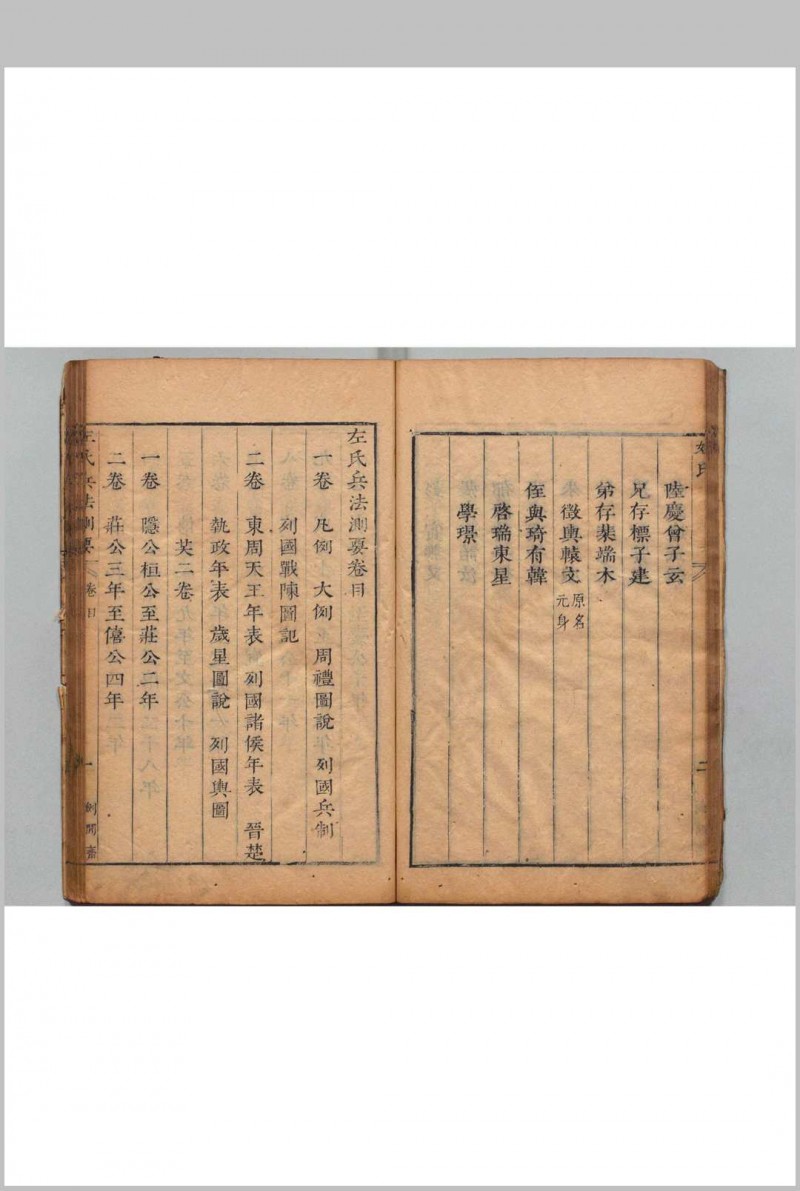 陸慶曾子玄
兄存標子建
弟存棻端木
徵輿轅文 原名元身
侄與琦有韓
啓瑞東星
學璟
二
左氏兵法測要卷目
一卷 凡例 大例 周禮圖說 列國兵制
列國戰陳圖記
二卷 東周天王年表 列國諸侯年表 晉楚
執政年表 歲星圖說 列國輿圖
共二卷
一卷 隱公桓公至莊公二年
二卷 莊公三年至僖公四年
左氏兵法測要 卷目 一 劍閒齋